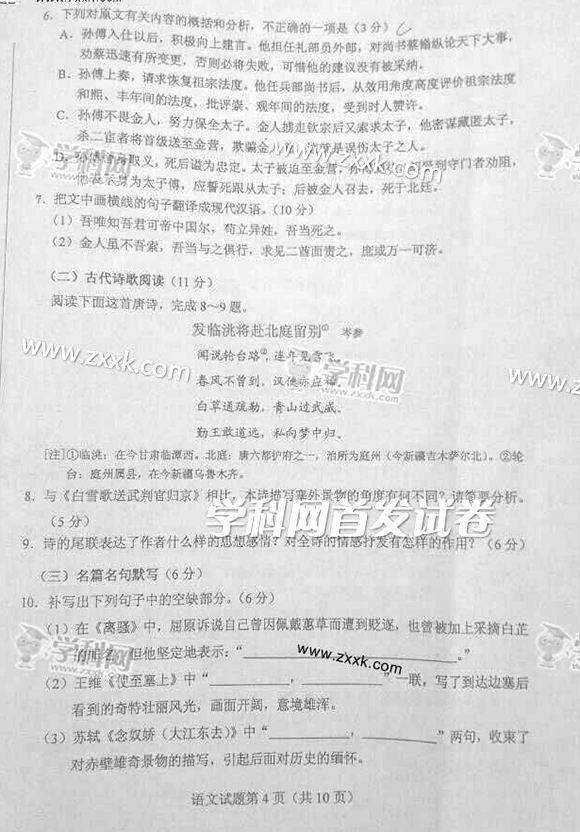 6. 下列对原文有关内容的概括和分析，不正确的一项是（3分）
A. 孙傅入仕以后，积极向上建言。他担任礼部员外郎，对尚书蔡翛纵论天下大事，
劝蔡迅速有所变更，否则必将失败，可惜他的建议没有被采纳。
B. 孙傅上奏，请求恢复祖宗法度。他任兵部尚书后，从效用角度高度评价祖宗法度
和熙、丰年间的法度，批评崇、观年间的法度，受到时人赞许。
C. 孙傅不畏金人，努力保全太子。金人掳走钦宗后又索求太子，他密谋藏匿太子，
杀二宦者将首级送至金营，欺骗金人 是误伤太子之人。
D. 孙傅舍身取义，死后谥为忠定。太子被迫至金营， 受到守门者劝阻，
他表示身为太子傅，应誓死跟从太子；后被金人召去，死于北廷。
7. 把文中画横线的句子翻译成现代汉语。（10分）
（1）吾唯知吾君可帝中国尔，苟立异姓，吾当死之。
（2）金人虽不吾索，吾当与之俱行，求见二酋面责之，庶或万一可济。
（二）古代诗歌阅读（11分）
阅读下面这首唐诗，完成8～9题。
发临洮将赴北庭留别① 岑参
闻说轮台路②，连年见雪飞。
春风不曾到，汉使亦应稀。
白草通疏勒，青山过武威。
勤王敢道远，私向梦中归。
[注]①临洮：在今甘肃临潭西。北庭：唐六都护府之一，治所为庭州（今新疆吉木萨尔北）。②轮
台：庭州属县，在今新疆乌鲁木齐。
8. 与《白雪歌送武判官归京》相比，本诗描写塞外景物的角度有何不同？请简要分析。
（5分）
9. 诗的尾联表达了作者什么样的思想感情？对全诗的情感抒发有怎样的作用？（6分）
（三）名篇名句默写（6分）
10. 补写出下列句子中的空缺部分。（6分）
（1）在《离骚》中，屈原诉说自己曾因佩戴蕙草而遭到贬逐，也曾被加上采摘白芷
的罪名，但他坚定地表示：“____________，____________。”
（2）王维《使至塞上》中“____________，____________”一联，写了到达边塞后
看到的奇特壮丽风光，画面开阔，意境雄浑。
（3）苏轼《念奴娇（大江东去）》中“____________，____________”两句，收束了
对赤壁雄奇景物的描写，引起后面对历史的缅怀。
语文试题第4页（共10页）
学科网
www.zxxk.com
学科网
zxxk.com
学科网首发试卷
www.zxxk.com